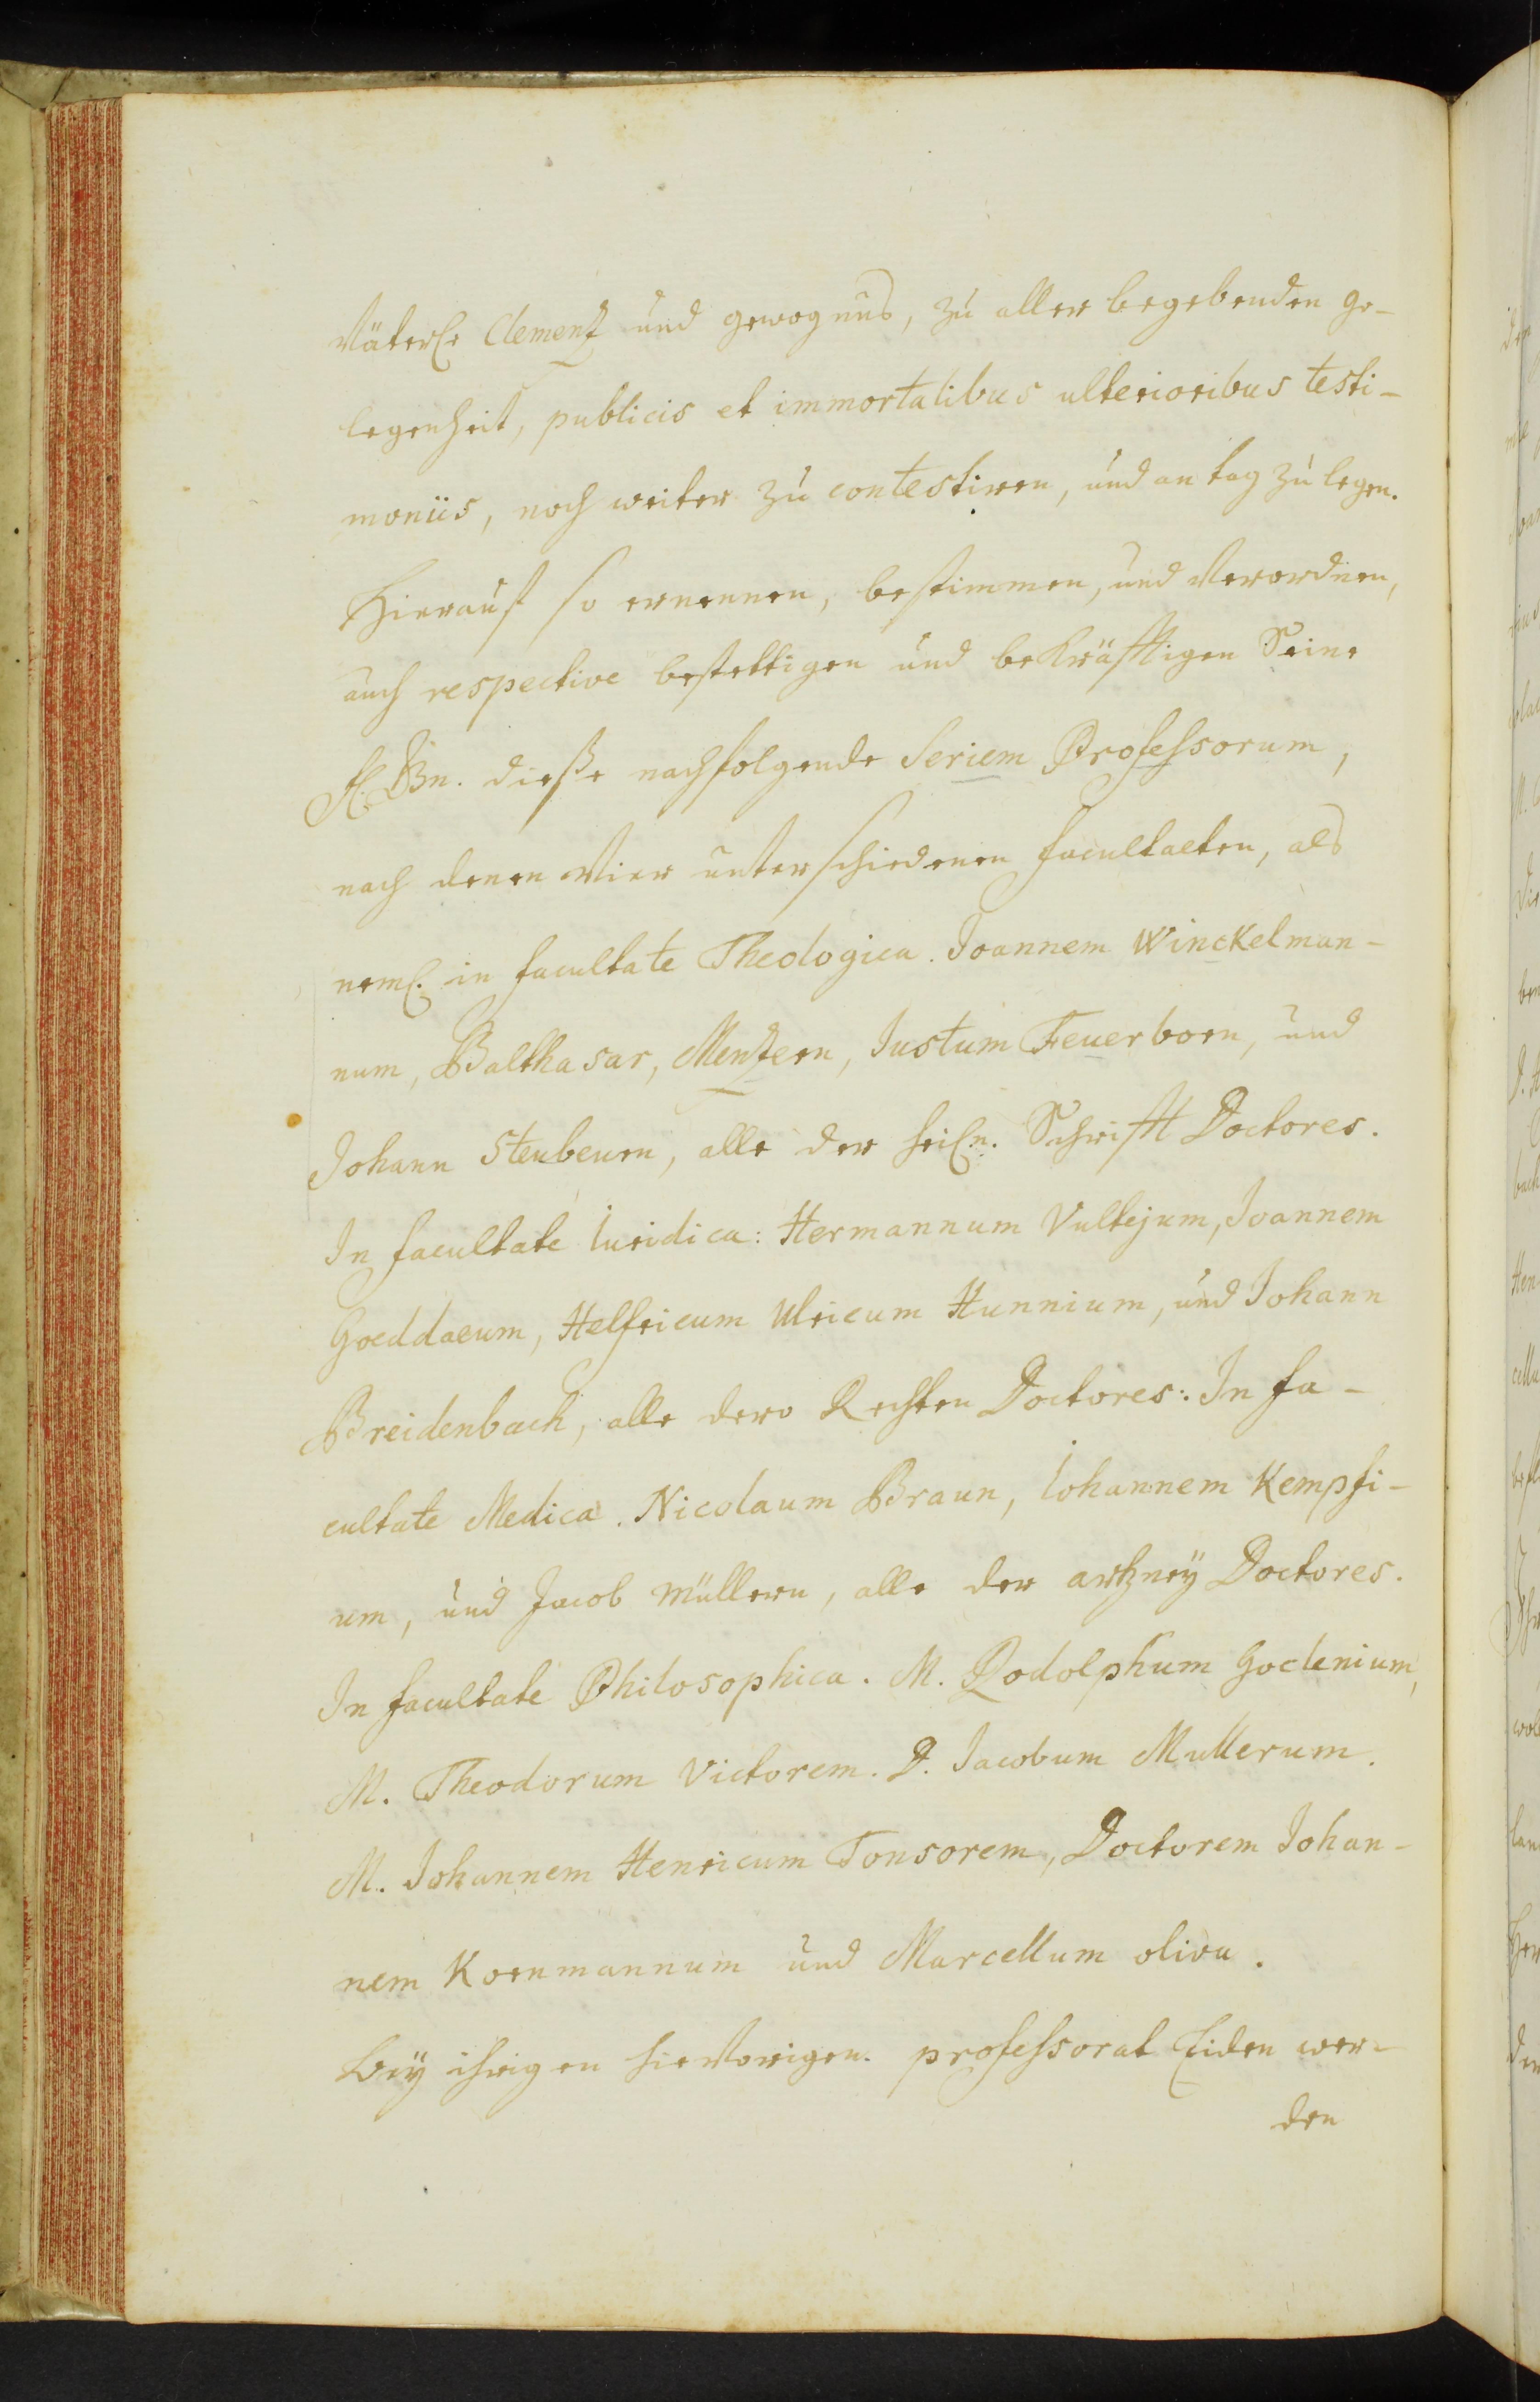 Väterl. Clementz und gewognus, zu aller begebenden ge-
legenheit, publicis et immortalibus ulterioribus testi-
moniis, noch weiter zu contestiren, und an tag zu legen.
Hierauf so ernennen, bestimmen, und Verordnen,
auch respective bestettigen und bekräfftigen Seine
fl. Gn. dieße nachfolgende Seriem Professorum,
nach denen Vier unterschiedenen facultaeten, als
neml. in facultate Theologica. Joannem Winckelman-
num, Balthasar, Mentzern, Iustum Feuerborn, und
Johann Steubern, alle der heiln. Schrifft Doctores.
In facultate Iuridica: Hermannum Vultejum, Joannem
Goeddaeum, Helfricum Ulricum Hunnium, und Johann
Breidenbach, alle dero Rechten Doctores: In fa-
cultate Medica. Nicolaum Braun, Iohannem Kempfi-
um, und Jacob Müllern, alle der artzney Doctores.
In facultate Philosophica. M. Rodolphum Goclenium,
M. Theodorum Victorem. D. Iacobum Mullerum.
M. Johannem Henricum Tonsorem, Doctorem Johan-
nem Kornmannum und Marcellum oliva.
Bey ihrigen hieVorigen. professorat Eiden wer-
den